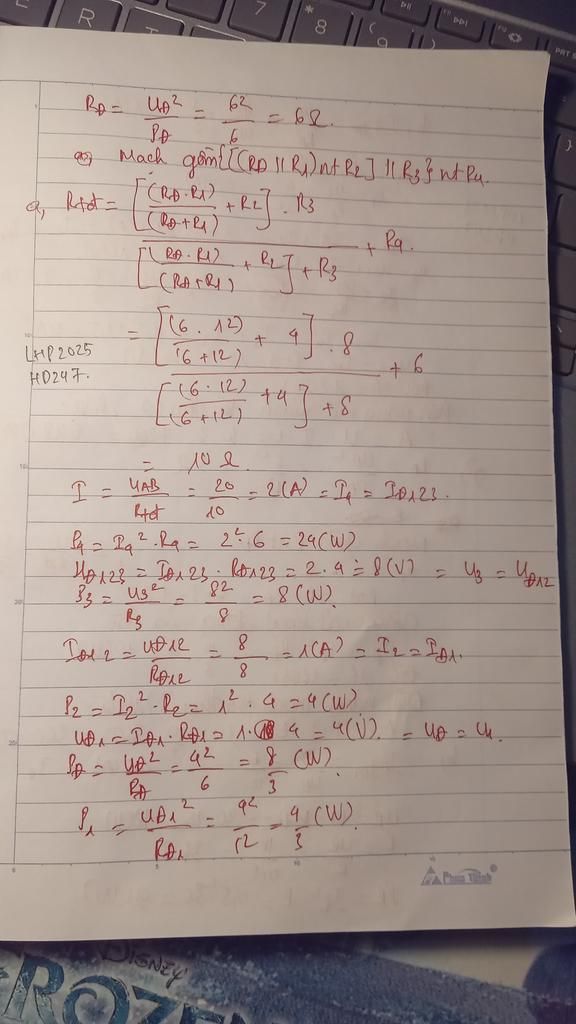 R
7
*
8
(
9
PRT S
RĐ = UĐ² / PĐ = 6² / 6 = 6Ω.
Mạch gồm {[(RĐ // R1) nt R2] // R3} nt R4.
a, Rtđ = [(RĐ . R1) / (RĐ + R1) + R2] . R3 / [(RĐ . R1) / (RĐ + R1) + R2] + R3 + R4.
= [(6 . 12) / (6 + 12) + 4] . 8 / [(6 . 12) / (6 + 12) + 4] + 8 + 6
LHP2025
HD247.
= 10 Ω.
I = UAB / Rtđ = 20 / 10 = 2(A) = I4 = IĐ123.
P4 = I4² . R4 = 2² . 6 = 24(W)
UĐ123 = IĐ123 . RĐ123 = 2 . 4 = 8(V) = U3 = UĐ12
P3 = U3² / R3 = 8² / 8 = 8(W).
IĐ12 = UĐ12 / RĐ12 = 8 / 8 = 1(A) = I2 = IĐ1.
P2 = I2² . R2 = 1² . 4 = 4(W)
UĐ1 = IĐ1 . RĐ1 = 1 . 4 = 4(V). = UĐ = U1.
PĐ = UĐ² / RĐ = 4² / 6 = 8 / 3 (W).
P1 = UĐ1² / RĐ1 = 4² / 12 = 4 / 3 (W).
DISNEY
FROZEN